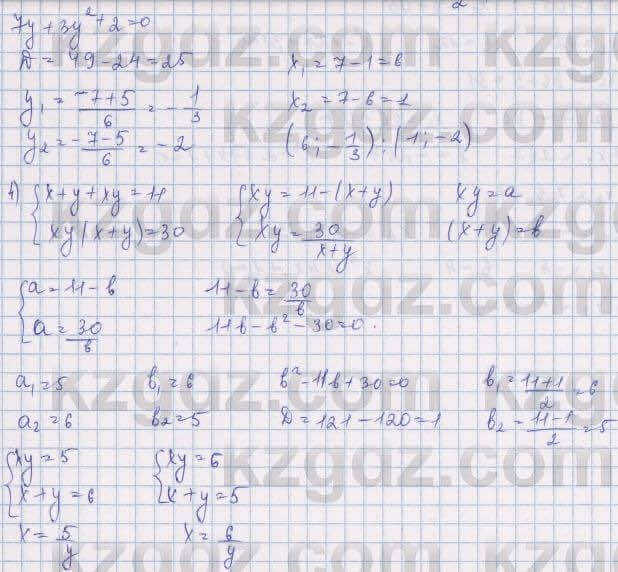 2
7y + 3y² + 2 = 0
D = 49 - 24 = 25 x₁ = 7 - 1 = 6
y₁ = (-7+5)/6 = -1/3 x₂ = 7 - 6 = 1
y₂ = (-7-5)/6 = -2 (6; -1/3); (1; -2)
4) { x + y + xy = 11 { xy = 11 - (x+y) xy = a
xy(x+y) = 30 xy = 30/(x+y) (x+y) = b
{ a = 11 - b 11 - b = 30/b
a = 30/b 11b - b² - 30 = 0.
a₁ = 5 b₁ = 6 b² - 11b + 30 = 0 b₁ = (11+1)/2 = 6
a₂ = 6 b₂ = 5 D = 121 - 120 = 1 b₂ = (11-1)/2 = 5
{ xy = 5 { xy = 6
x + y = 6 x + y = 5
x = 5/y x = 6/y
kzgdz.com